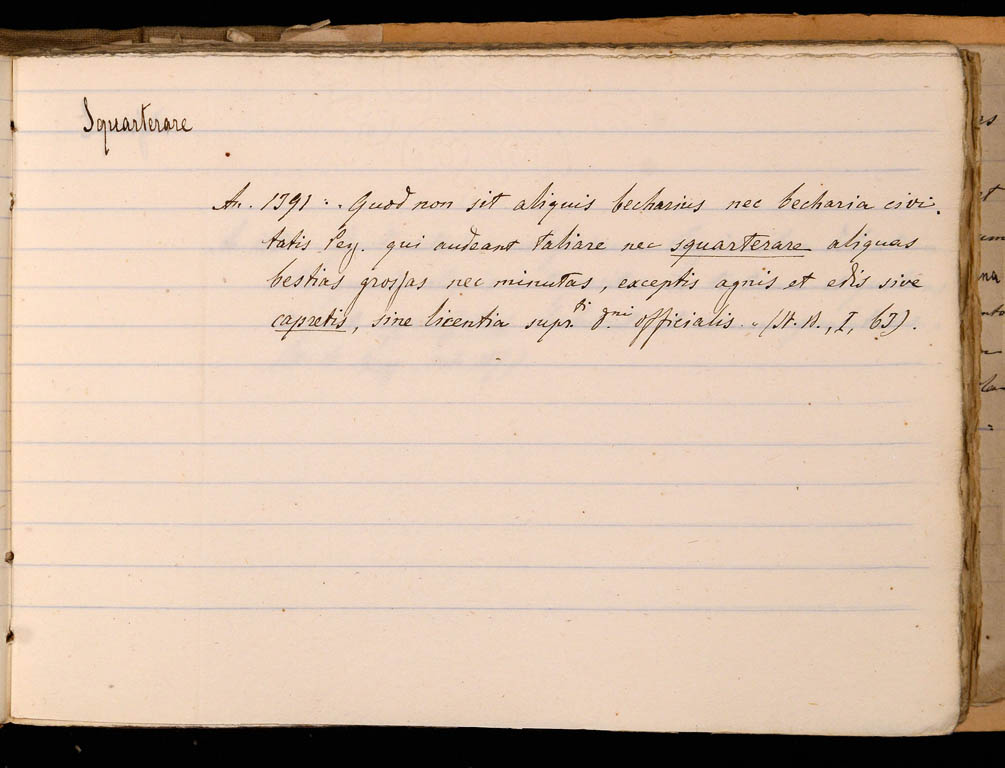 Squarterare
An. 1391 „ Quod non sit aliquis becharius nec becharia civi-
tatis Pey. qui audeant taliare nec squarterare aliquas
bestias grossas nec minutas, exceptis agnis et edis sive
capretis, sine licentia supr.ti d.ni officialis „ (St. B., I, 67).